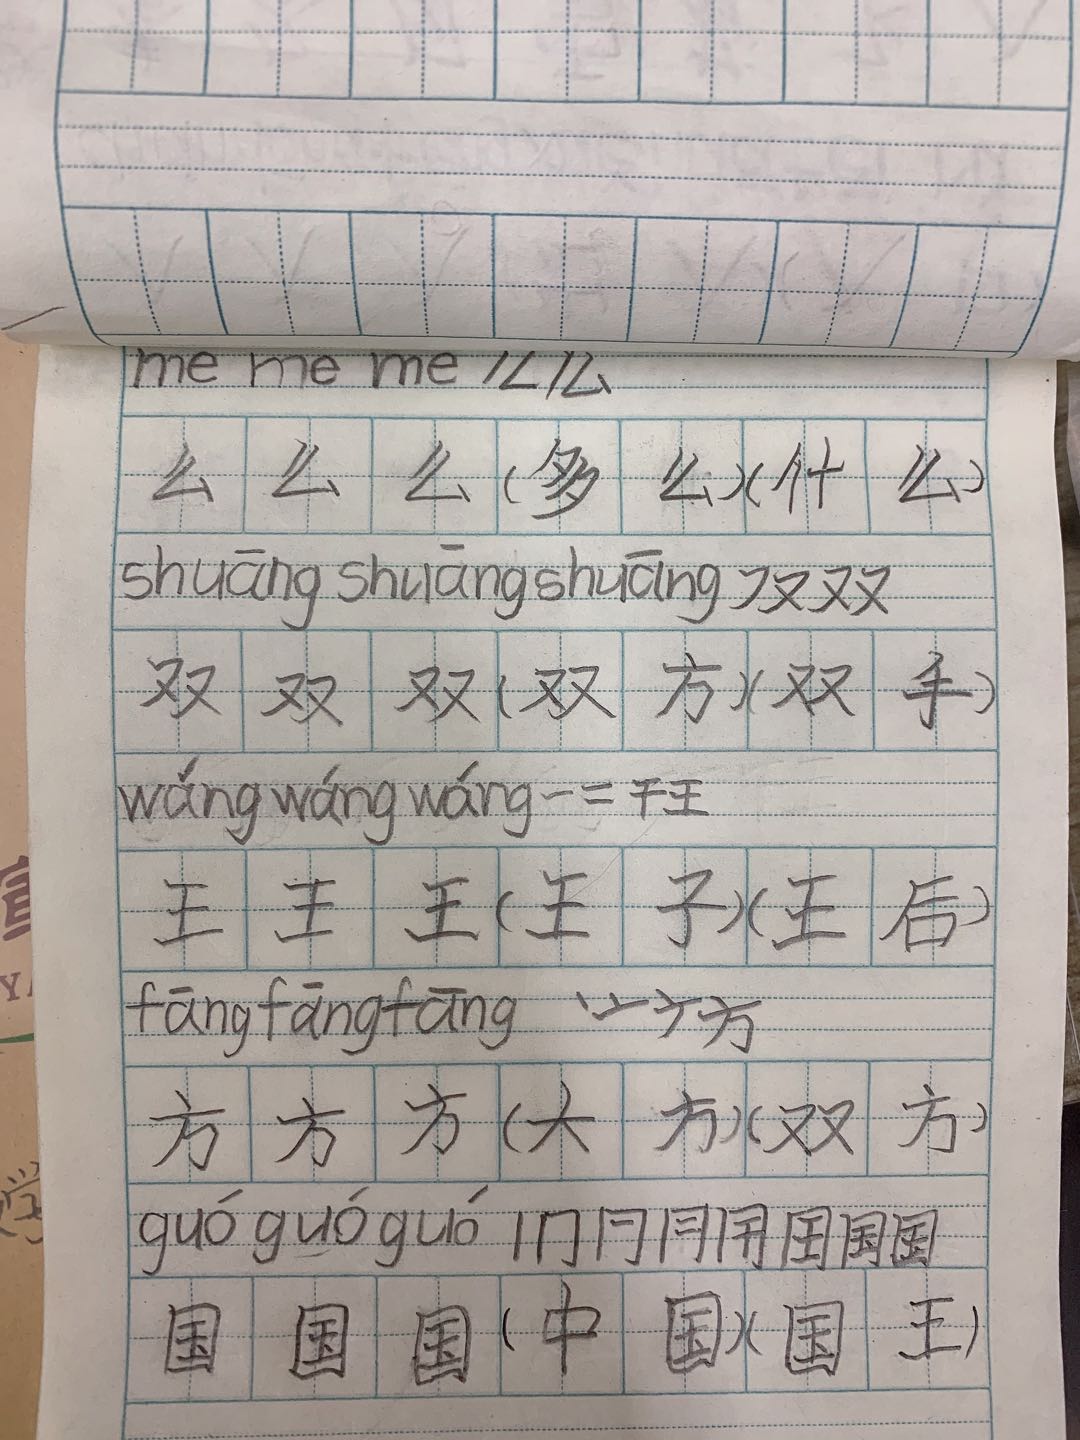 me me me ノ 厶 么
么 么 么 (多 么)(什 么)
shuāng shuāng shuāng フ 又 双 双
双 双 双 (双 方)(双 手)
wáng wáng wáng 一 二 干 王
王 王 王 (王 子)(王 后)
fāng fāng fāng 丶 亠 方 方
方 方 方 (大 方)(双 方)
guó guó guó 丨 冂 国 国
国 国 国 (中 国)(国 王)